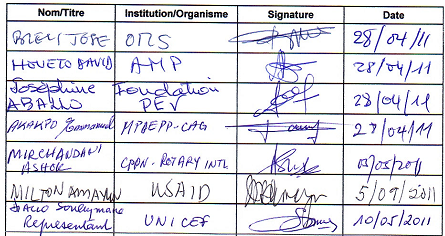 Nom/Titre Institution/Organisme Signature Date
BIEMI JOSE OMS 28/04/11
HOUETO DAVID AMP 28/04/11
Joséphine ABALLO Fondation PEV 28/04/11
AKAKPO Emmanuel MPDEPP-CAG 27/04/11
MIRCHANDANI ASHOK CPPN-ROTARY INTL 03/05/2011
MILTON AMAYUN USAID 5/07/2011
Souleymane Representant UNICEF 10/05/2011